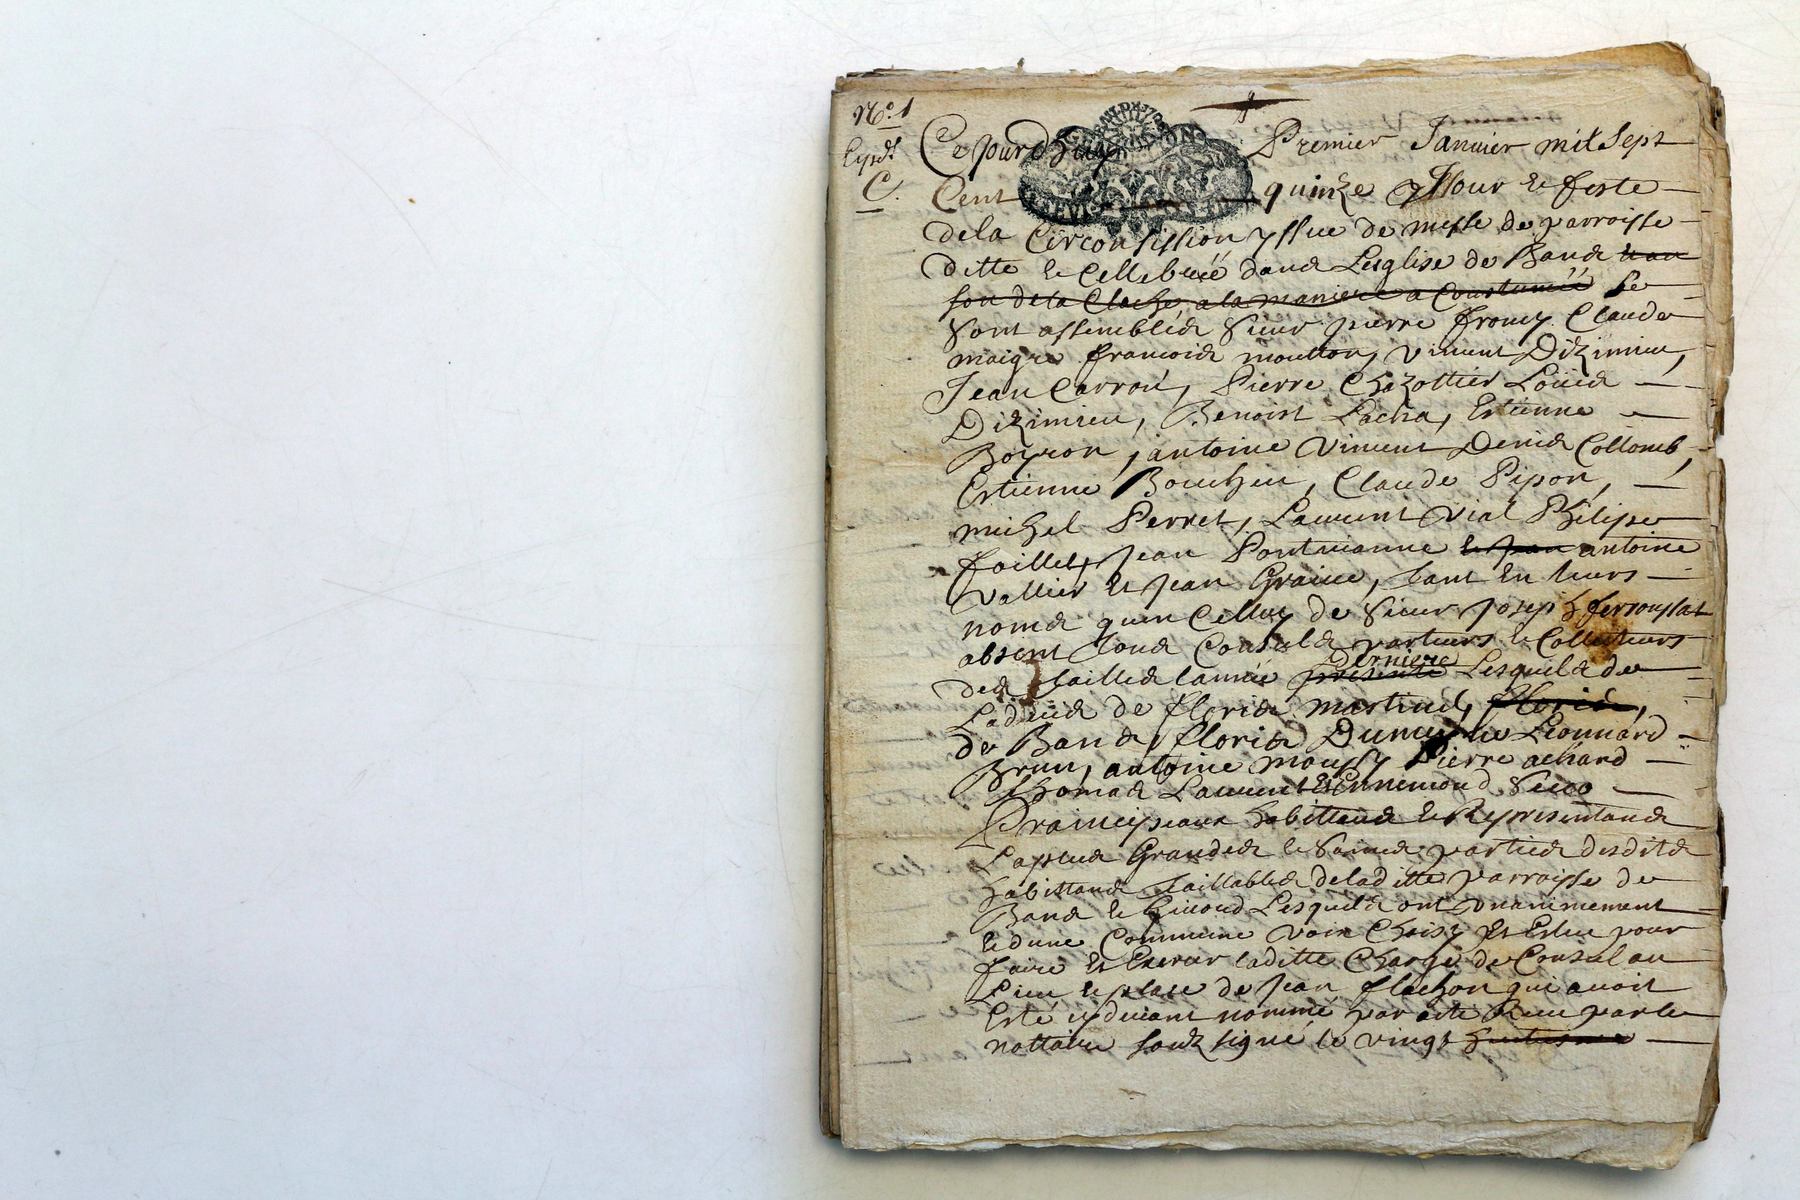 No. 1
Expdt
C.
Ce jourdhuy Premier Janvier mil Sept
Cent quinze Jour de feste
dela Circonsission yssue de messe de parroisse
ditte et Cellebréé dans Lesglise de Bans au
son dela Cloche a la maniere a Coustuméé se
sont assemblés sieur pierre Claude
maigre francois moutton, vincent Dizimieu,
Jean Carroú, Pierre Chazottier Loüis
Dizimieu, Benoist Lacha, Estienne
Boyron, antoine vincent Denis Collomb,
Estienne Bouchu, Claude Pipon,
michel Perret, Laurent vial Philipe
foillet, Jean Pontvianne et Jean antoine
vallier et Jean Graine, tant en leurs
noms quen Celluy de sieur Joseph
absent tous Consuls parteurs et Collecteurs
des tailles lannéé presente derniere Lesquels de
Ladvis de floris martinel, floris,
de Bans, floris Leonnard
Brun, antoine moussy Pierre achard
thomas Laurent Et Ennemond
Praincypeaux habittans et Representans
La plus Grandes et saines parties desdits
habittans taillables deladitte parroisse de
Bans et Givord Lesquels ont unanimement
et dune Commune voix Choisy Et Esleu pour
faire Et Exercer laditte Charge de Consul au
Lieu et place de Jean flachon qui avoit
Esté cydevant nommé par acte Receu par le
nottaire soubzsigné le vingt huitiesme